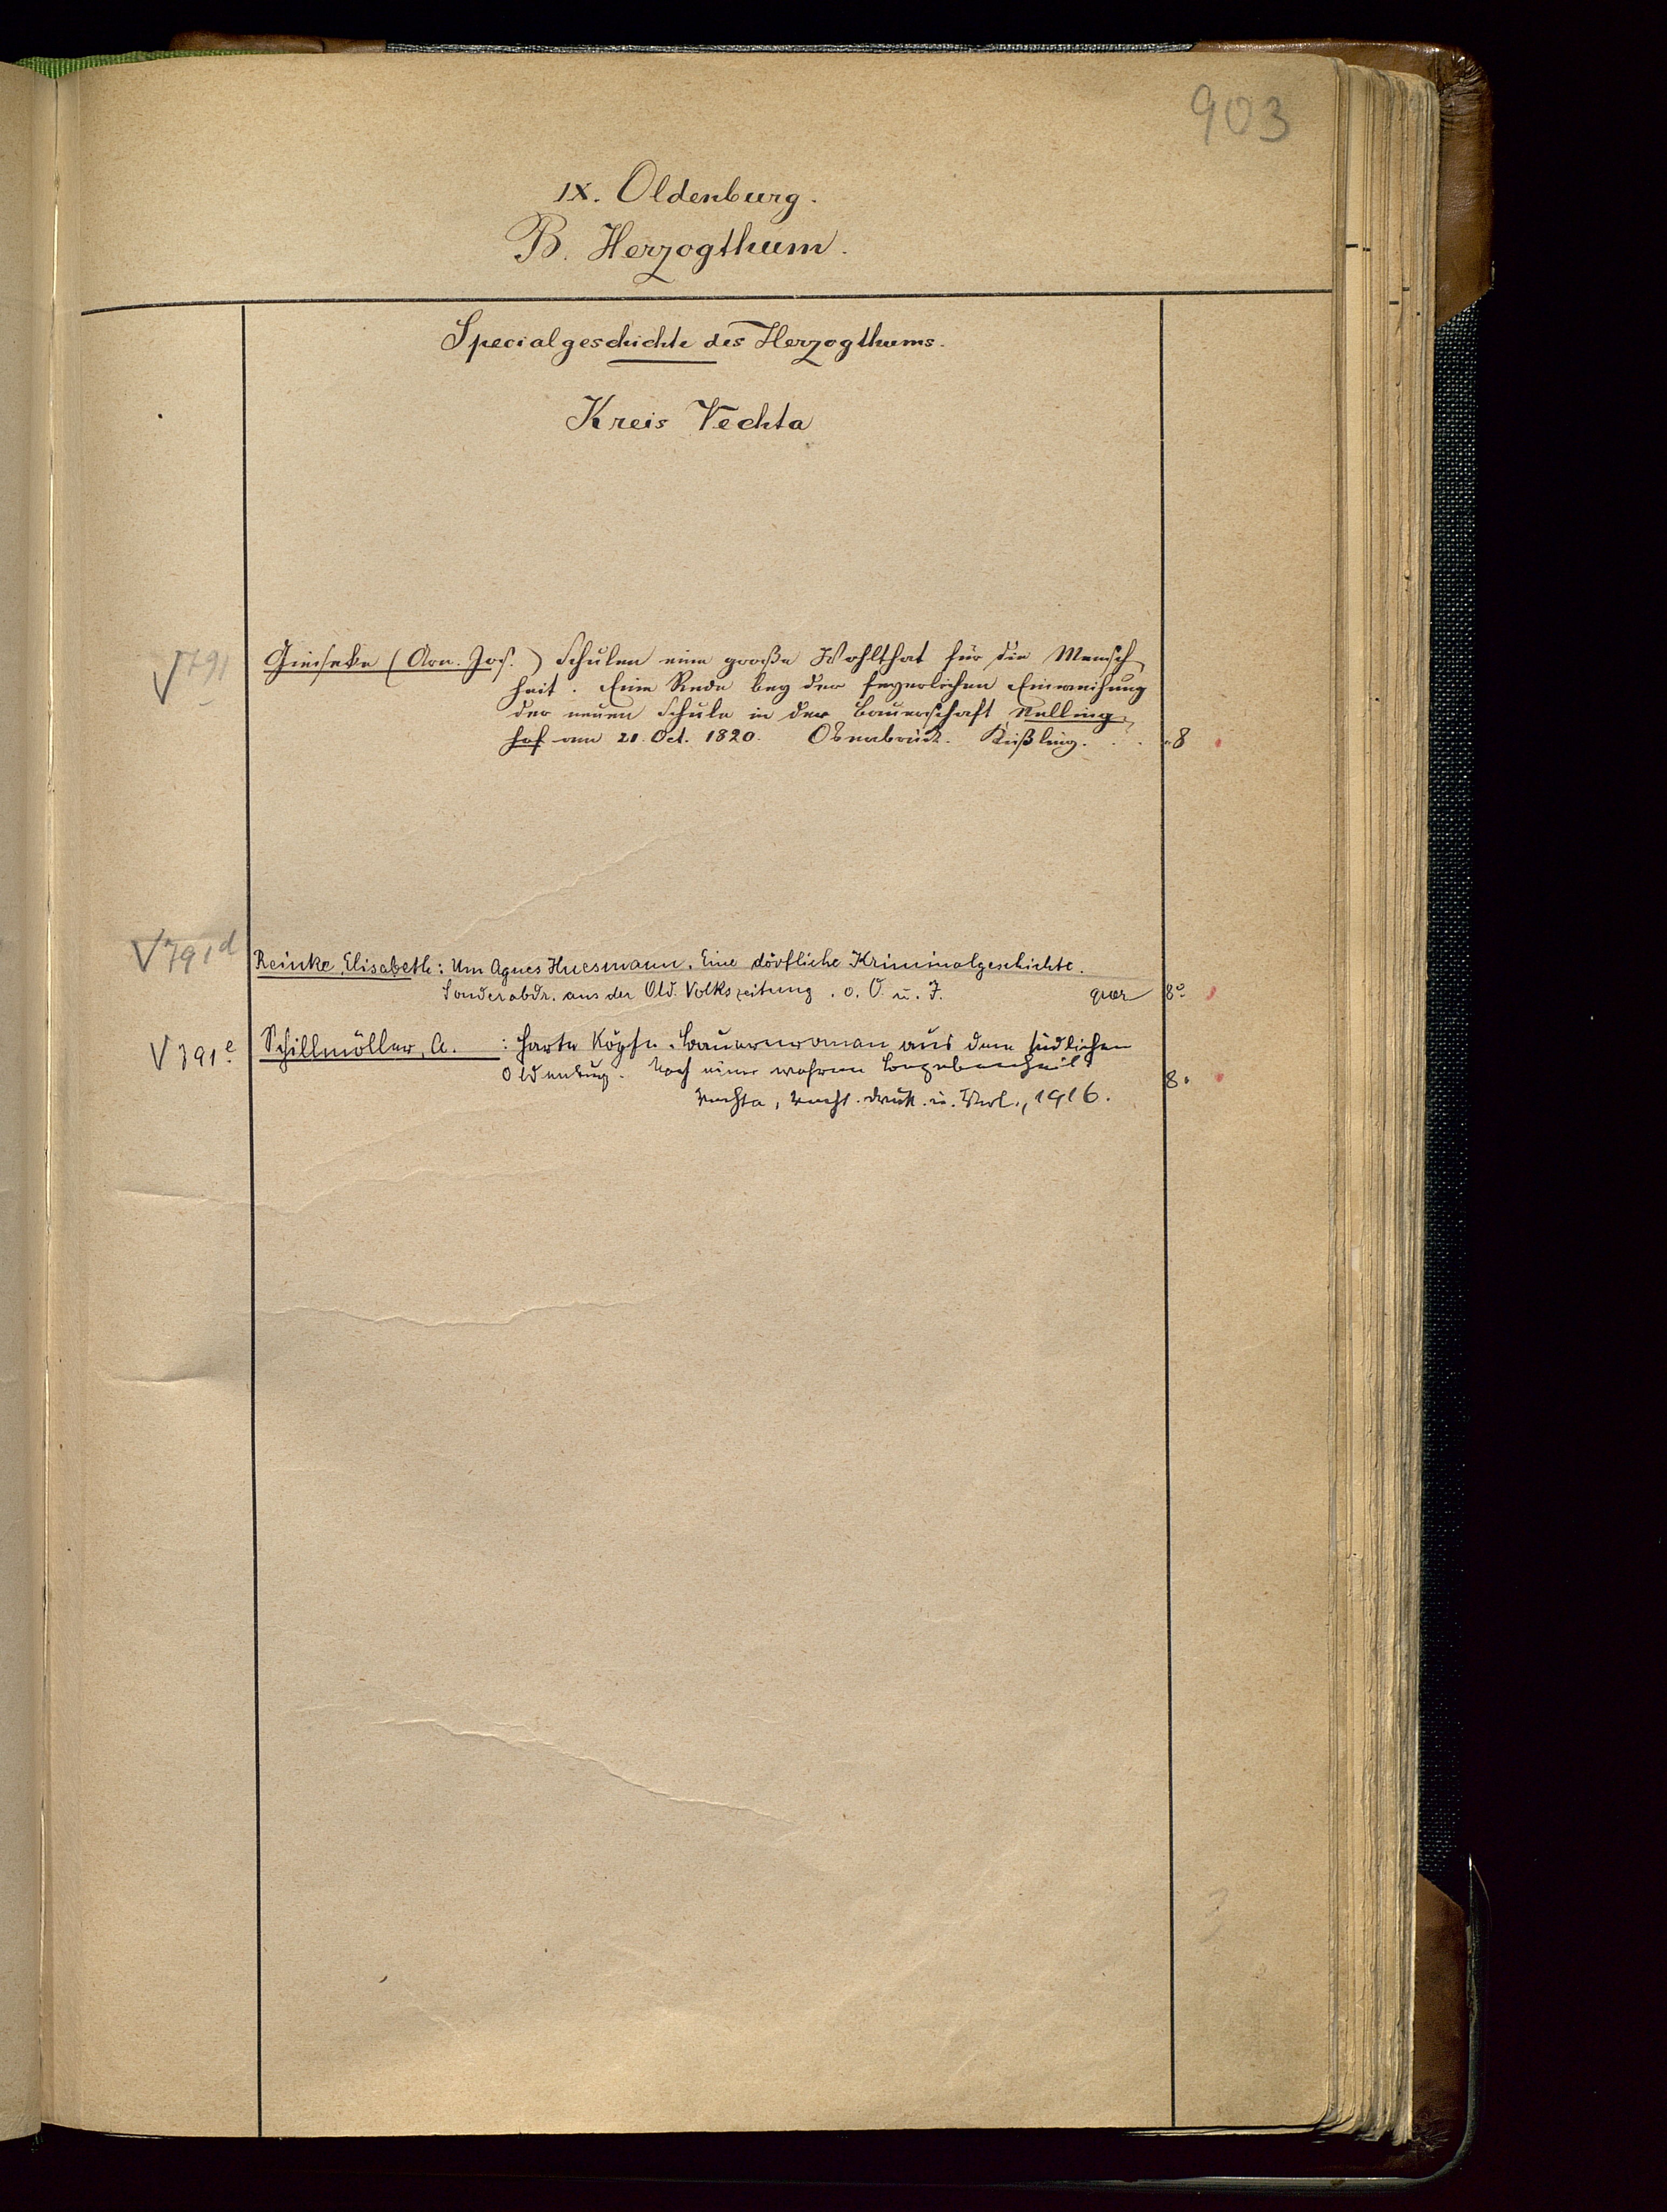 903
IX. Oldenburg.
B. Herzogthum.
Specialgeschichte des Herzogthums.
Kreis Vechta
V 791 Gieseke (Arn. Jos.) Schulen eine große Wohlthat für die Mensch-
heit. Eine Rede bey der feyerlichen Einweihung
der neuen Schule in der Bauerschaft Nelling-
hof am 21. Oct. 1820. Osnabrück. Kißling. . . 8
V 791d Reinke, Elisabeth: Um Agnes Huesmann. Eine dörfliche Kriminalgeschichte.
Sonderabdr. aus der Old. Volkszeitung. o. O. u. J. quer 8°
V 791e Schillmöller, A. : Harte Köpfe. Bauernroman aus dem südlichen
Oldenburg. Nach einer wahren Begebenheit. 8°
Vechta, Vecht. Druck. u. Verl., 1916.